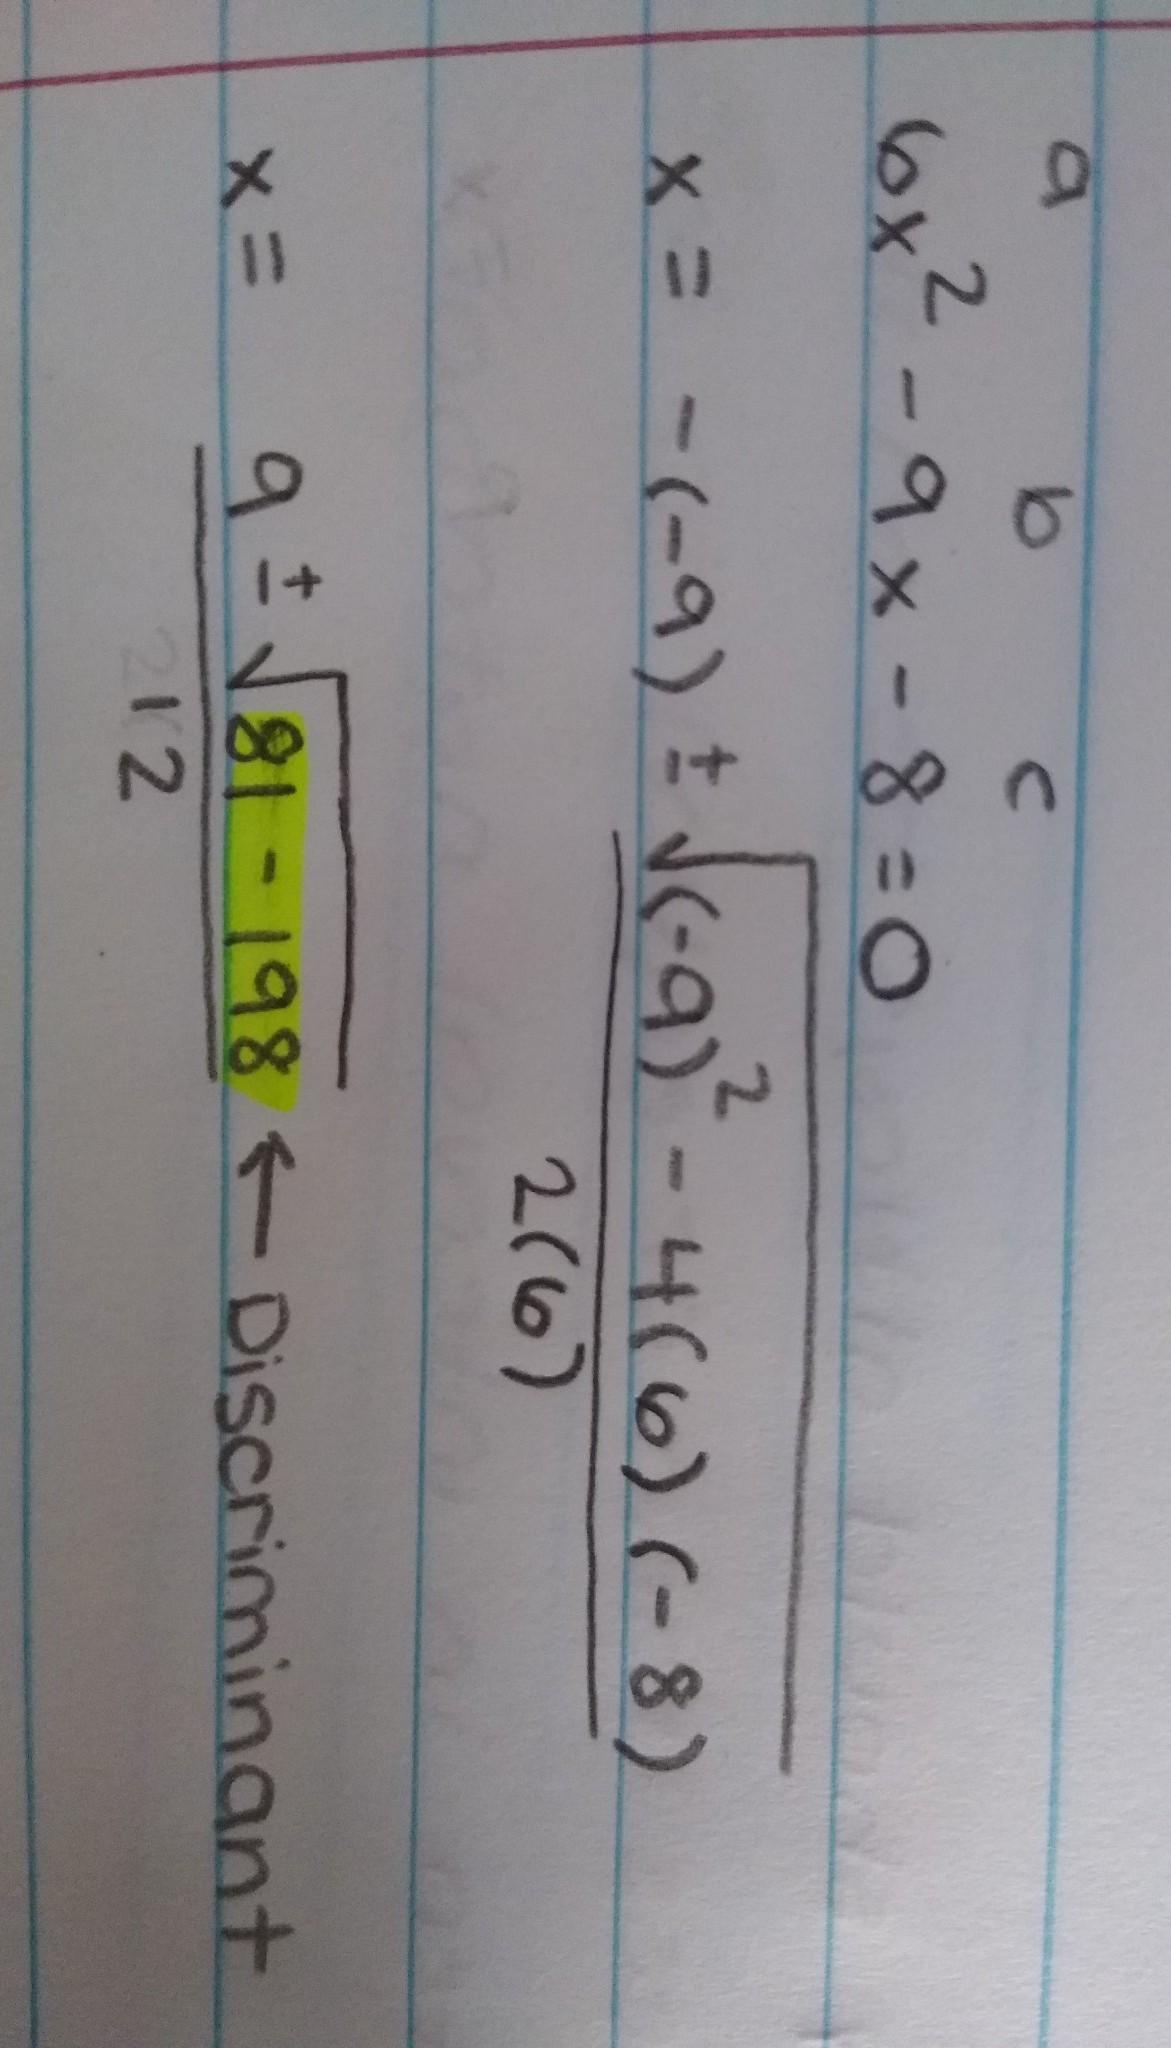 a b c
6x² - 9x - 8 = 0
x = -(-9) ± √(-9)² - 4(6)(-8)
2(6)
x = 9 ± √81 - 198 ← Discriminant
12